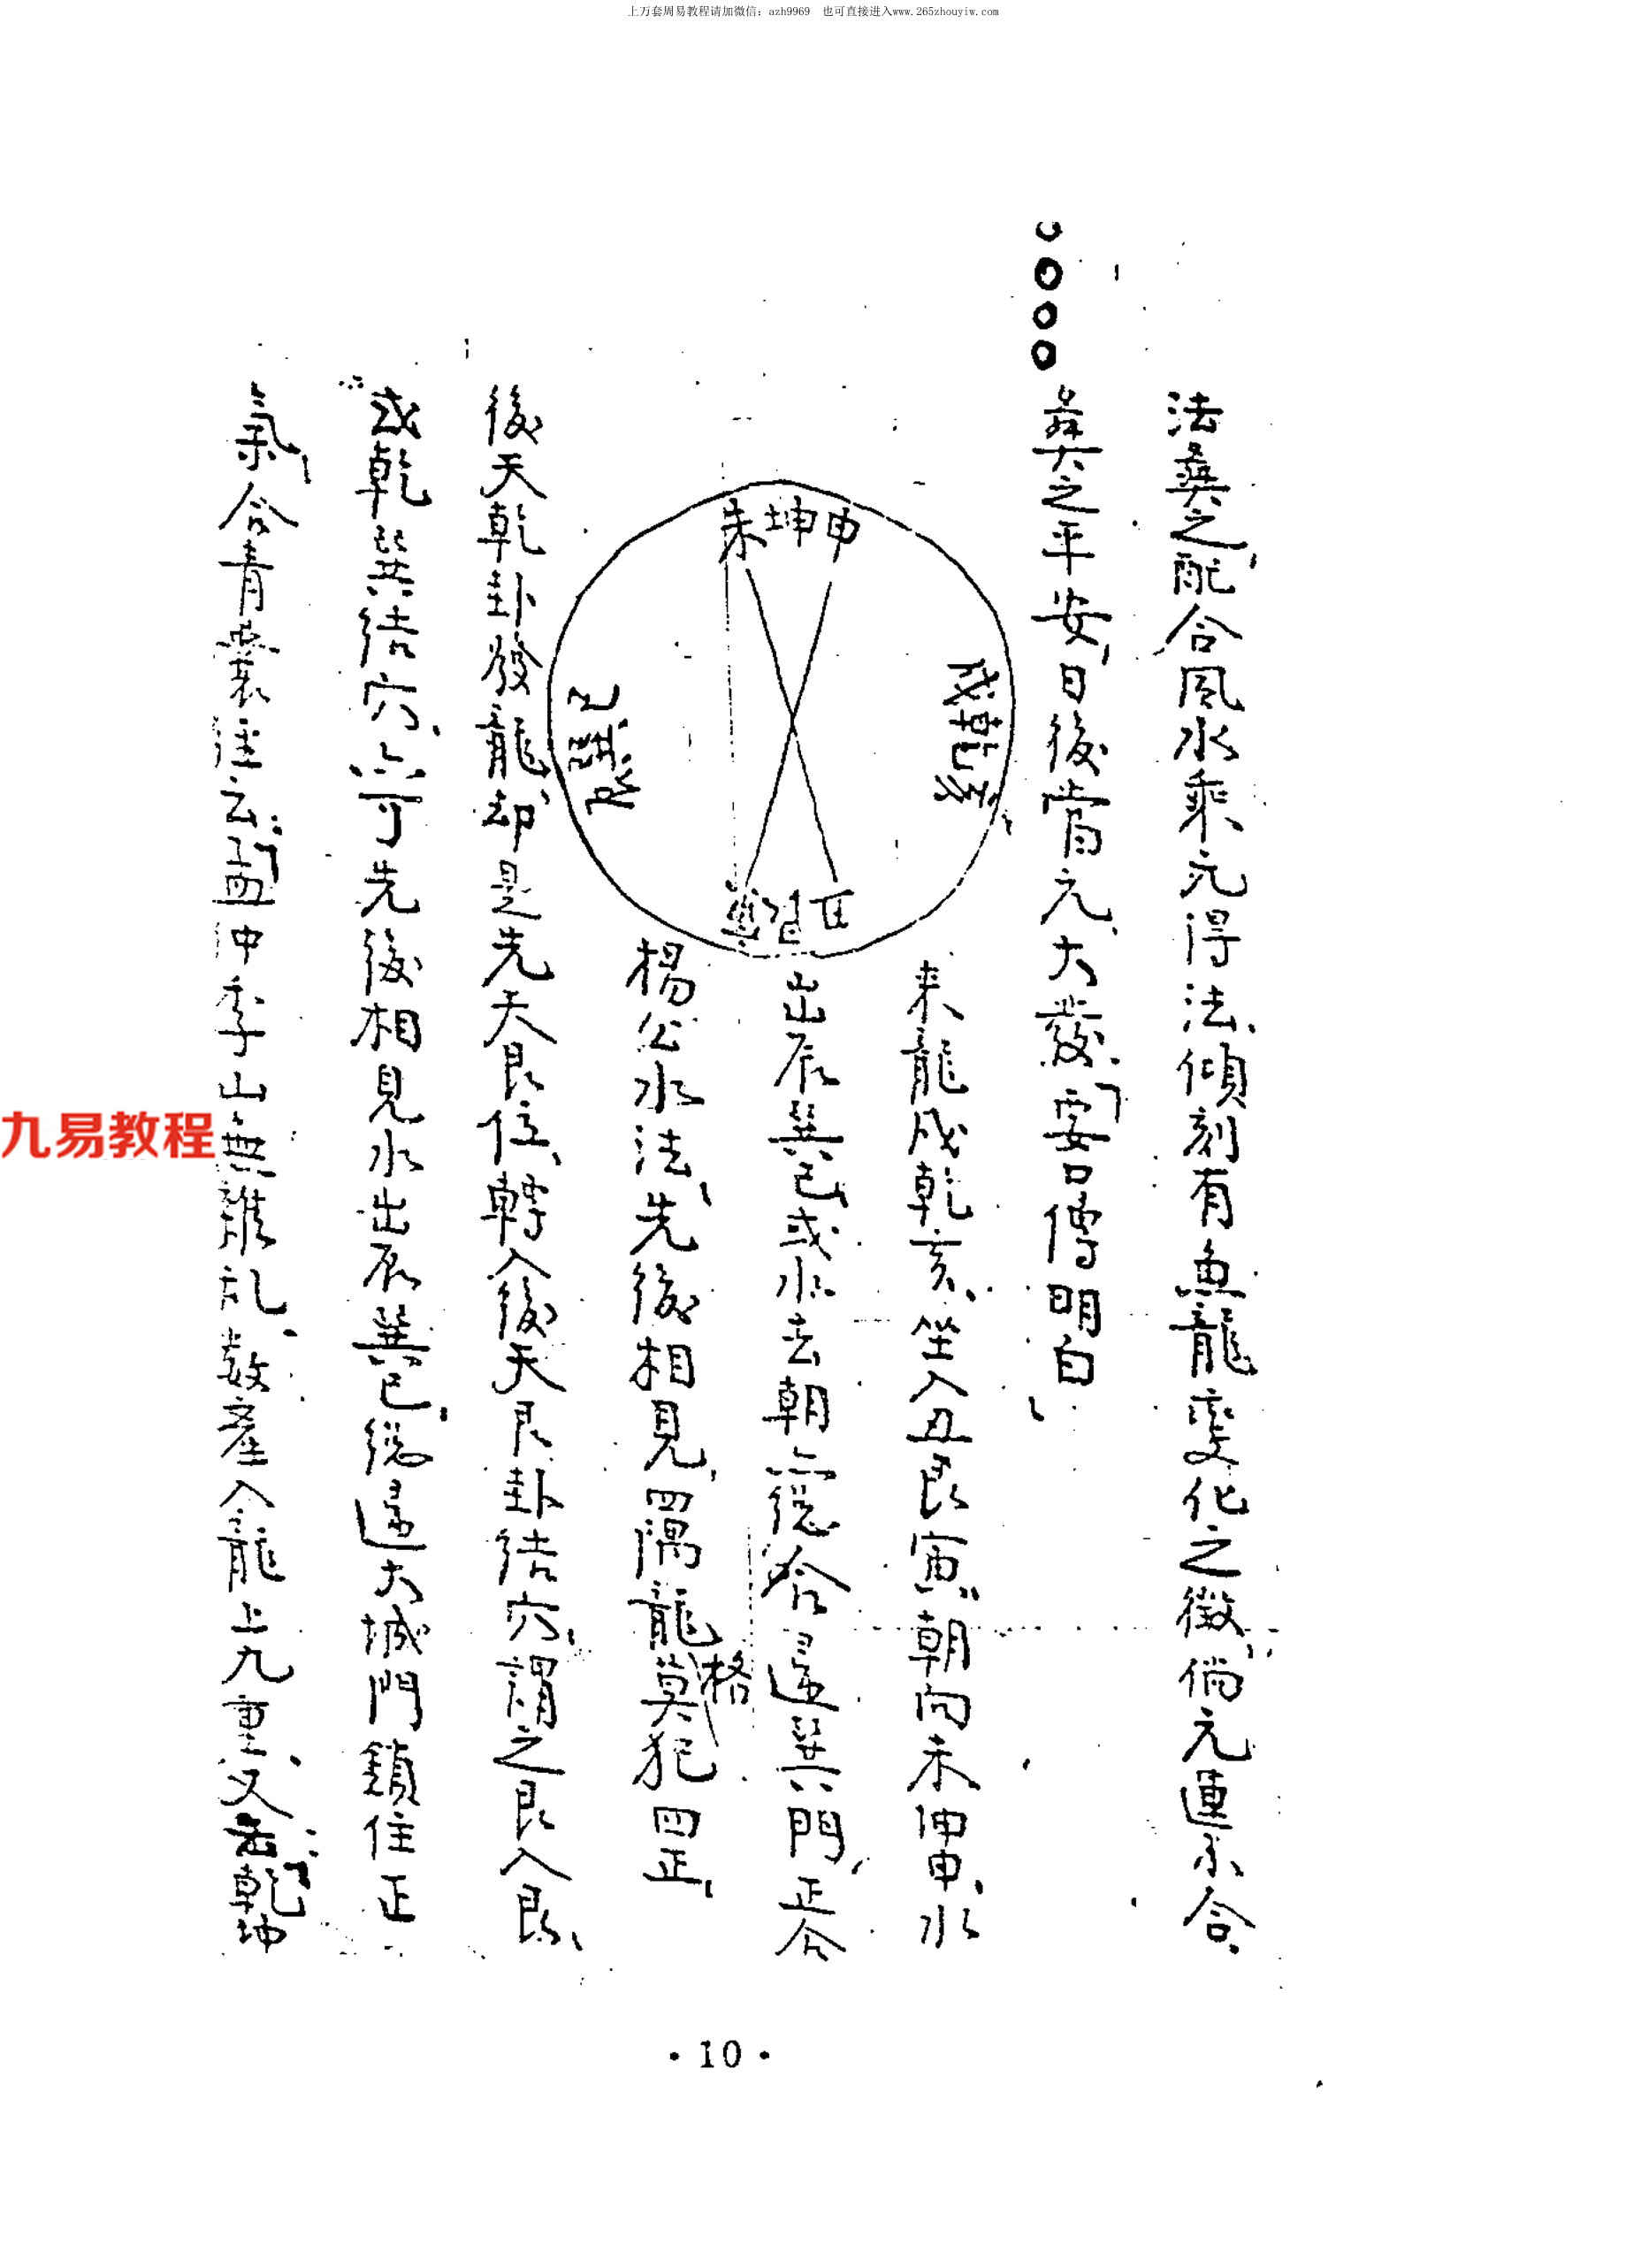 上万套周易教程请加微信：azh9969　也可直接进入www.265zhouyiw.com
法葬之配合風水乘元得法、傾刻有魚龍变化之徵、倘元運不合
葬之平安、日後當元、大發、「要口傳明白、
来龍戍乾亥、坐入丑艮寅、朝向未坤申、水
出辰巽巳、或水去朝、亦總合归巽門、正合
楊公水法、先後相見、四隅龍格莫犯四正、
後天乾卦發龍、却是先天艮位、轉入後天艮卦结穴、謂之艮入艮、
或乾巽结穴、亦可先後相見水出辰巽巳、總归大城門鎖住正
氣、合青囊注云：「孟仲季山無雜乱、数産入龍上九重、又云：「乾坤
未坤申
丑
九易教程
·10·